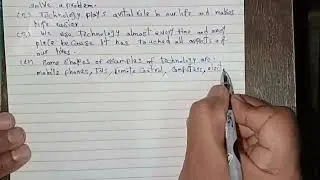 solve a problem.
(2) Technology plays a vital role in our life and makes
life easier.
(3) We use technology almost every time and every
place because it has touched all aspects of
our lives.
(4) Some shapes or examples of technology are:
mobile phones, TVs, remote control, computers, elec